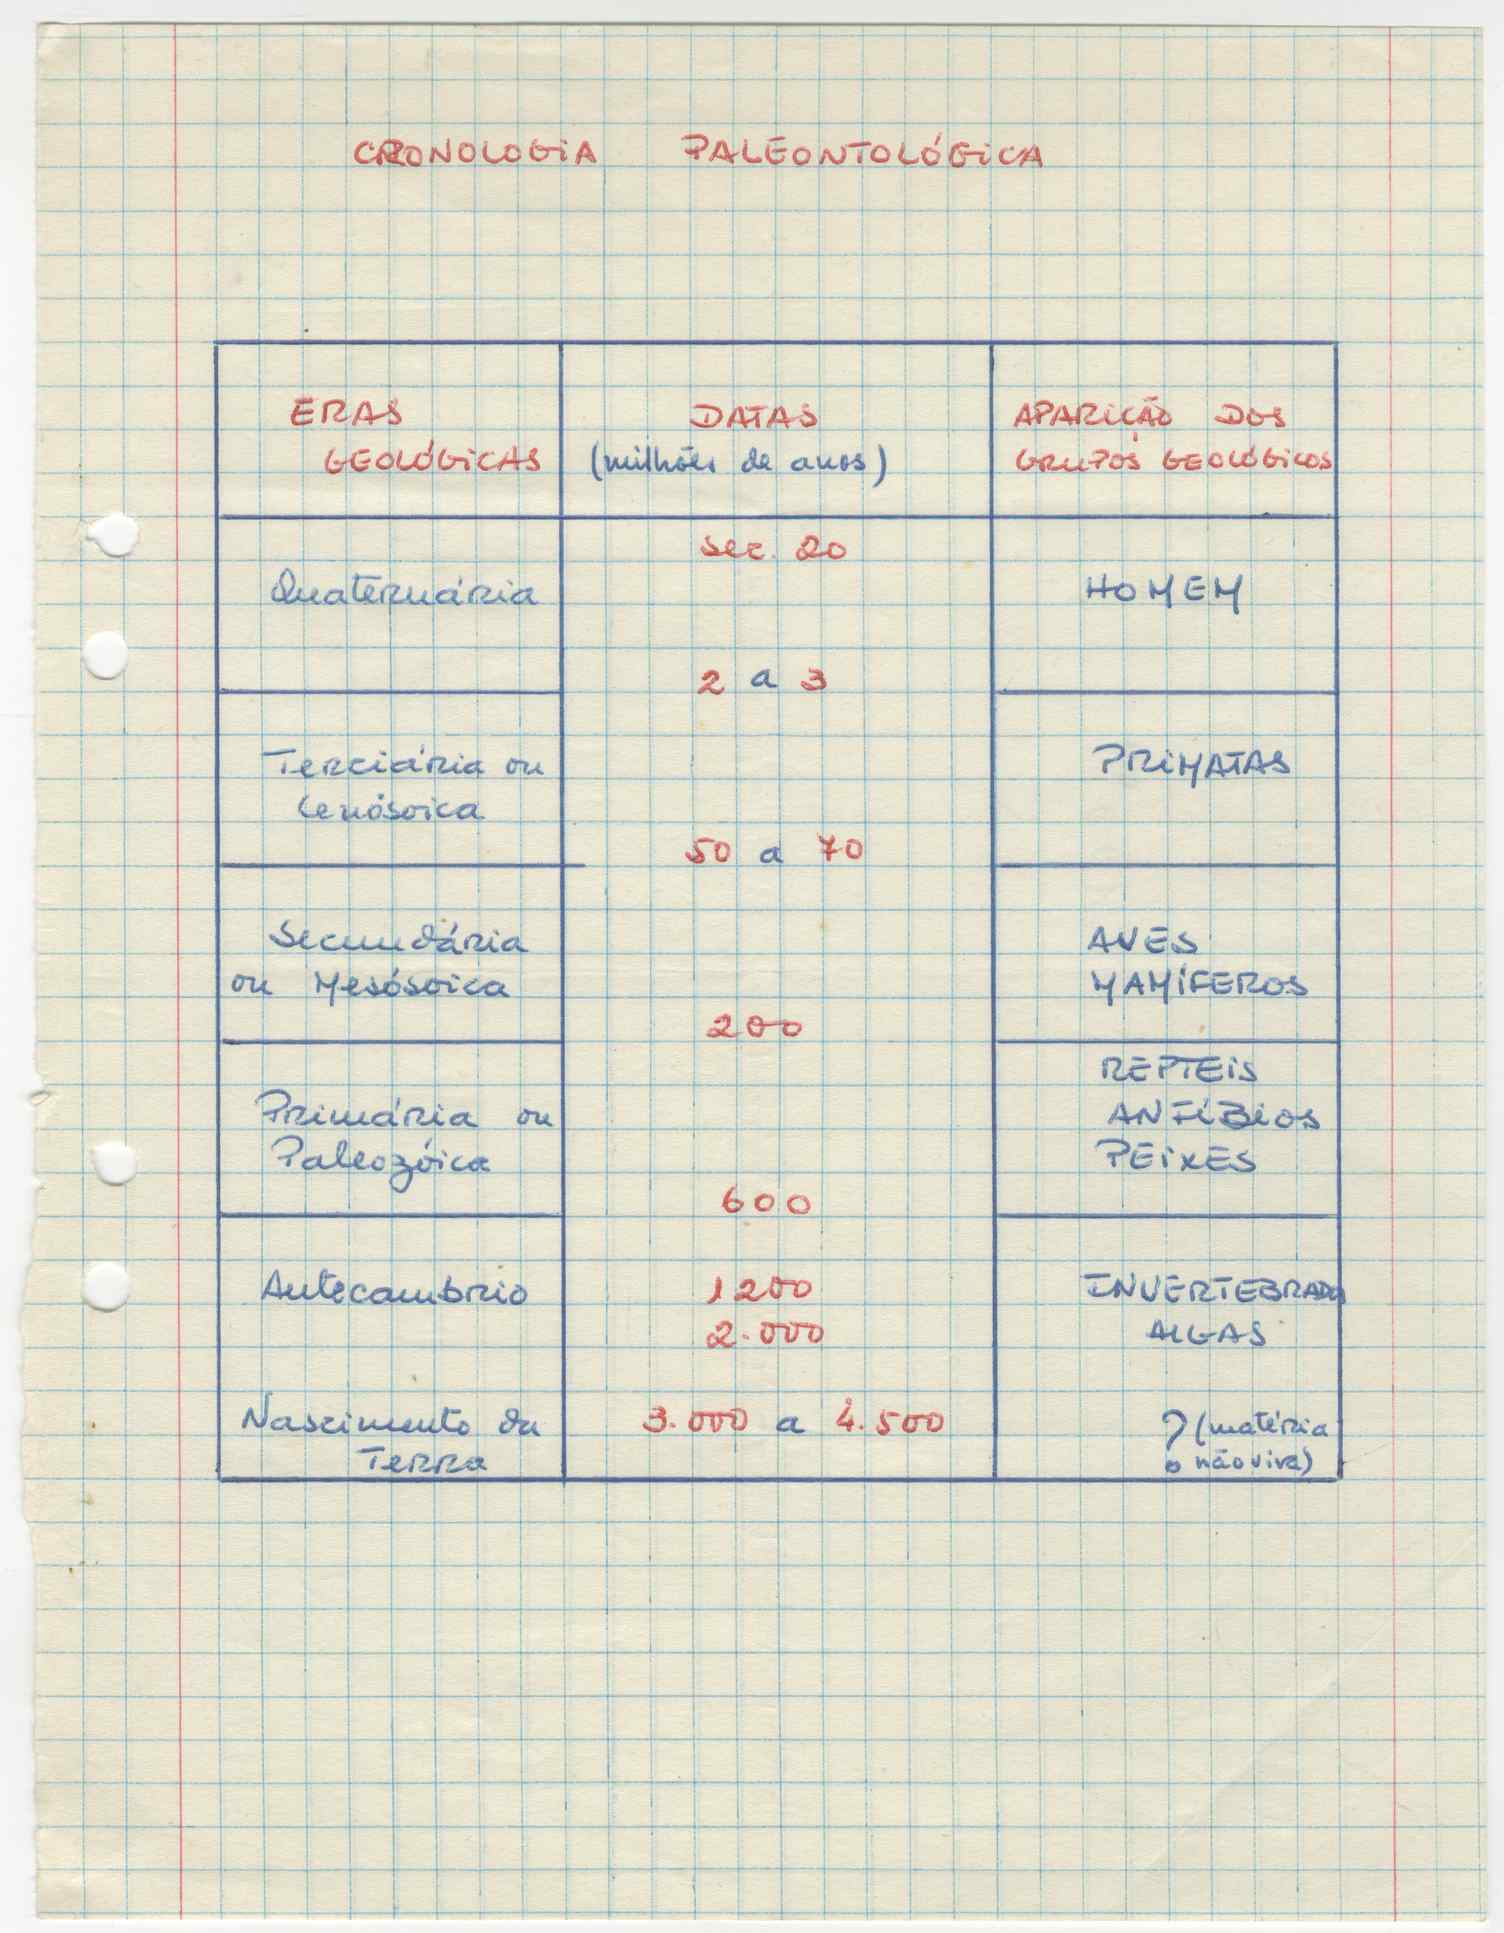 CRONOLOGIA PALEONTOLÓGICA
ERAS GEOLÓGICAS
DATAS
(milhões de anos)
APARIÇÃO DOS
GRUPOS GEOLÓGICOS
Quaternária
sec. 20
HOMEM
2 a 3
Terciária ou
Cenósoica
PRIMATAS
50 a 70
Secundária
ou Mesósoica
AVES
MAMÍFEROS
200
Primária ou
Paleozóica
REPTEIS
ANFÍBIOS
PEIXES
600
Antecambrio
1200
2.000
INVERTEBRADOS
ALGAS
Nascimento da
Terra
3.000 a 4.500
? (matéria
não viva)